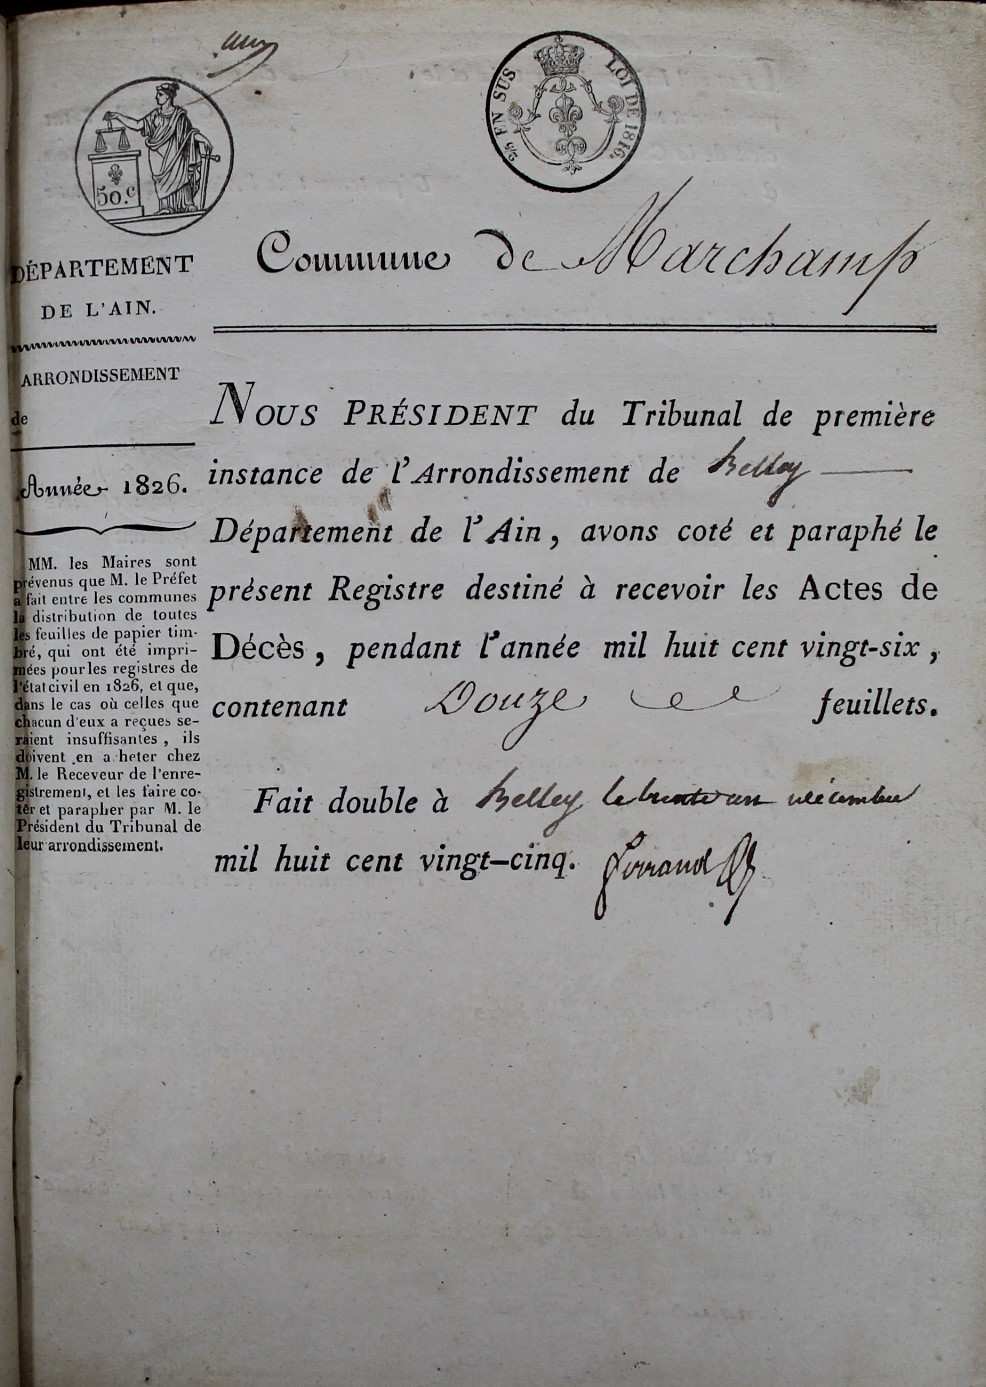 50.c
2/5 EN SUS LOI DE 1816.
DÉPARTEMENT
DE L'AIN.
ARRONDISSEMENT
de
Année 1826.
MM. les Maires sont
prévenus que M. le Préfet
a fait entre les communes
la distribution de toutes
les feuilles de papier tim-
bré, qui ont été impri-
mées pour les registres de
l'état civil en 1826, et que,
dans le cas où celles que
chacun d'eux a reçues se-
raient insuffisantes, ils
doivent en a heter chez
M. le Receveur de l'enre-
gistrement, et les faire co-
ter et parapher par M. le
Président du Tribunal de
leur arrondissement.
Commune de Marchamp
NOUS PRÉSIDENT du Tribunal de première
instance de l'Arrondissement de Belley
Département de l'Ain, avons coté et paraphé le
présent Registre destiné à recevoir les Actes de
Décès, pendant l'année mil huit cent vingt-six,
contenant Douze feuillets.
Fait double à Belley le trente un décembre
mil huit cent vingt-cinq.